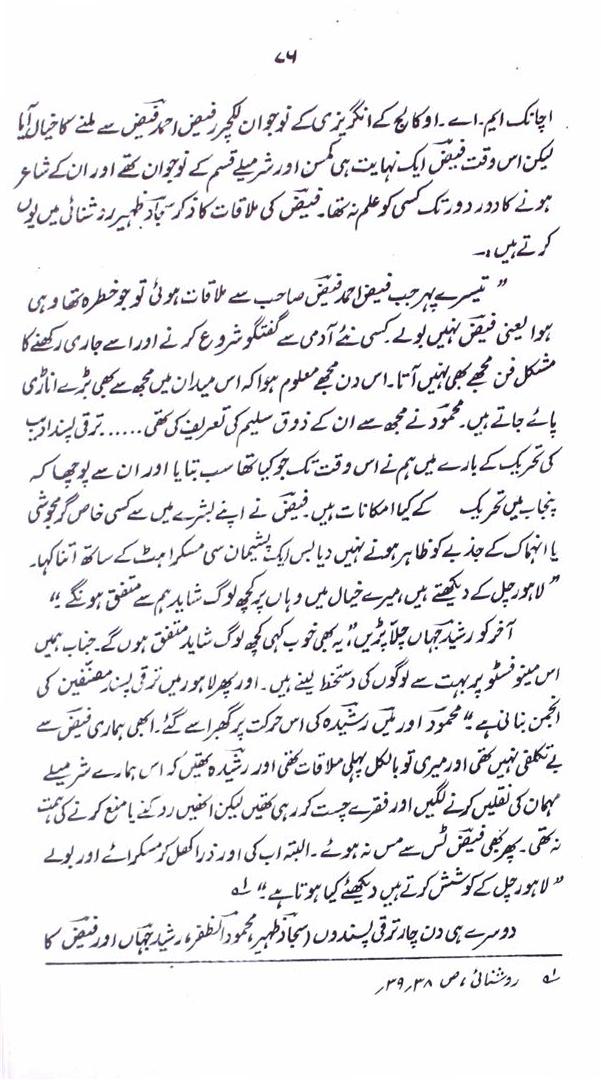 ۷۶
اچانک ایم۔اے۔او کالج کے انگریزی کے نوجوان لکچرر فیض احمد فیضؔ سے ملنے کا خیال آیا
لیکن اس وقت فیضؔ ایک نہایت ہی کمسن اور شرمیلے قسم کے نوجوان تھے اور ان کے شاعر
ہونے کا دور دور تک کسی کو علم نہ تھا۔ فیضؔ کی ملاقات کا ذکر سجاد ظہیر روشنائی میں یوں
کرتے ہیں :۔
” تیسرے پہر جب فیض احمد فیضؔ صاحب سے ملاقات ہوئی تو جو خطرہ تھا وہی
ہوا یعنی فیضؔ نہیں بولے۔ کسی نئے آدمی سے گفتگو شروع کرنے اور اسے جاری رکھنے کا
مشکل فن مجھے بھی نہیں آتا۔ اس دن مجھے معلوم ہوا کہ اس میدان میں مجھ سے بھی بڑے اناڑی
پائے جاتے ہیں۔ محمودؔ نے مجھ سے ان کے ذوق سلیم کی تعریف کی تھی...... ترقی پسند ادب
کی تحریک کے بارے میں ہم نے اس وقت تک جو کیا تھا سب بتایا اور ان سے پوچھا کہ
پنجاب میں تحریک کے کیا امکانات ہیں۔ فیضؔ نے اپنے بشرے میں سے کسی خاص گرمجوشی
یا انہماک کے جذبے کو ظاہر ہونے نہیں دیا بس ایک پشیمان سی مسکراہٹ کے ساتھ اتنا کہا۔
” لاہور چل کے دیکھتے ہیں، میرے خیال میں وہاں پر کچھ لوگ شاید ہم سے متفق ہونگے “
آخر کو رشید جہاں چلّا پڑیں” یہ بھی خوب کہی کچھ لوگ شاید متفق ہوں گے۔ جناب ہمیں
اس مینوفسٹو پر بہت سے لوگوں کی دستخط لینے ہیں۔ اور پھر لاہور میں ترقی پسند مصنفین کی
انجمن بنانی ہے “ محمودؔ اور میں رشیدہ کی اس حرکت پر گھبرا سے گئے۔ ابھی ہماری فیضؔ سے
بے تکلفی نہیں تھی اور میری تو بالکل پہلی ملاقات تھی اور رشیدہ تھیں کہ اس ہمارے شرمیلے
مہمان کی نقلیں کرنے لگیں اور فقرے چست کر رہی تھیں لیکن انھیں روکنے یا منع کرنے کی ہمت
نہ تھی۔ پھر بھی فیضؔ ٹس سے مس نہ ہوئے۔ البتہ اب کی اور ذرا کھل کر مسکرائے اور بولے
” لاہور چل کے کوشش کرتے ہیں دیکھئے کیا ہوتا ہے۔“ ؎۱
دوسرے ہی دن چار ترقی پسندوں (سجاد ظہیر، محمود الظفر، رشید جہاں اور فیضؔ کا
؎۱ روشنائی، ص ۳۸، ۳۹،